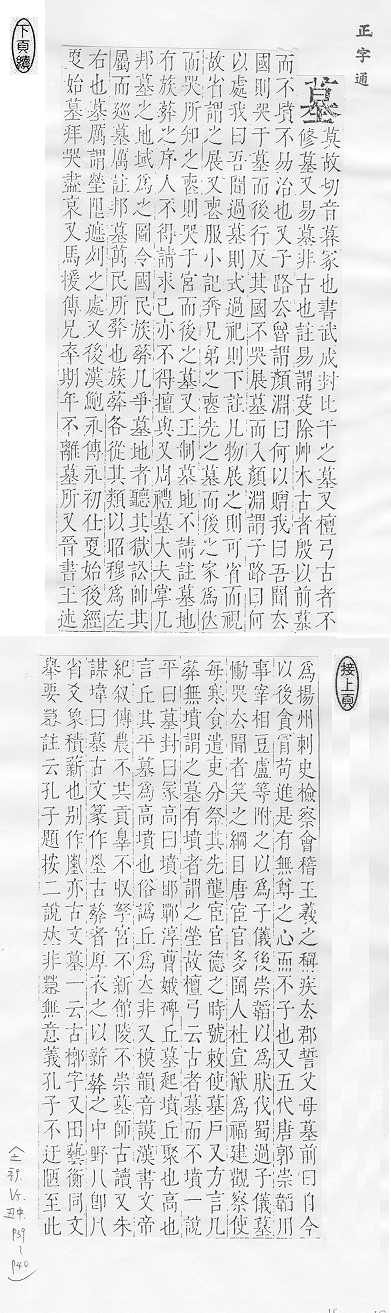 正字通
墓
莫故切音暮冢也書武成封比干之墓又檀弓古者不
修墓又易墓非古也註易謂芟除艸木古者殷以前墓
而不墳不易治也又子路去魯謂顏淵曰何以贈我曰吾聞去
國則哭于墓而後行反其國不哭展墓而入顏淵謂子路曰何
以處我曰吾聞過墓則式過祀則下註凡物展之則可省而視
故省謂之展又喪服小記奔兄弟之喪先之墓而後之家爲位
而哭所知之喪則哭于宮而後之墓又王制墓地不請註墓地
有族葬之序人不得請求己亦不得擅與又周禮墓大夫掌凡
邦墓之地域爲之圖令國民族葬凡爭墓地者聽其獄訟帥其
屬而巡墓厲註邦墓萬民所葬也族葬各從其類以昭穆爲左
右也墓厲謂塋限遮列之處又後漢鮑永傳永初仕更始後經
更始墓拜哭盡哀又馬援傳兄卒期年不離墓所又晉書王述
下頁續
接上頁
爲揚州刺史檢察會稽王羲之稱疾去郡誓父母墓前曰自今
以後貪冒苟進是有無尊之心而不子也又五代唐郭崇韜用
事宰相豆盧等附之以爲子儀後崇韜以爲肰伐蜀過子儀墓
慟哭去聞者笑之綱目唐宦官多閩人杜宣猷爲福建觀察使
每寒食遣吏分祭其先壟宦官德之時號敕使墓戶又方言凡
葬無墳謂之墓有墳者謂之塋故檀弓云古者墓而不墳一說
平曰墓封曰冢高曰墳邯鄲淳曹娥碑丘墓起墳丘聚也高也
言丘其平墓爲高墳也俗譌丘爲去非又模韻音謨漢書文帝
紀叙傳農不共貢辠不收孥宮不新館陵不崇墓師古讀又朱
謀㙔曰墓古文篆作
古葬者厚衣之以新葬之中野八卽
省爻象積薪也别作
亦古文墓一云古
字又田藝衡同文
舉要
註云孔子題按二說
非
無意義孔子不迂陋至此
P39
P40